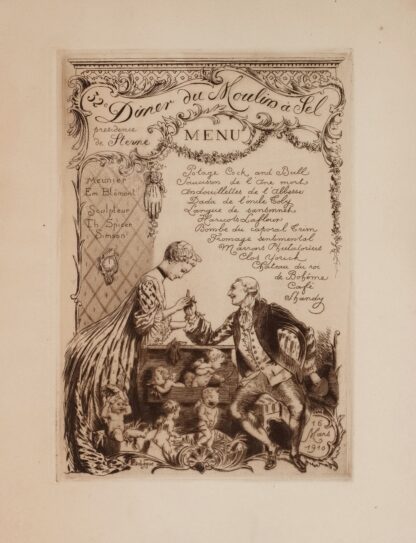 52e Dîner du Moulin à Sel
présidence
de Sterne
MENU
Meunier
Em Blémont
Sculpteur
Th. Spicer
Simson
Potage Cock and Bull
Saucisson de l'âne mort
Andouillettes de l'Abbesse
Dada de l'oncle Toby
Langue de sansonnet
Haricots Lafleur
Bombe du caporal Trim
Fromage sentimental
Marrons Phutatorius
Clos Yorick
Château du roi
de Bohême
Café
Shandy
16
Mars
1910